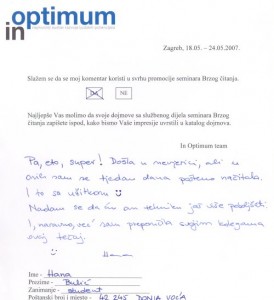 in optimum
Zagreb, 18.05. - 24.05.2007.
Slažem se da se moj komentar koristi u svrhu promocije seminara Brzog čitanja.
DA NE
Najljepše Vas molimo da svoje dojmove sa službenog dijela seminara Brzog
čitanja zapišete ispod, kako bismo Vaše impresije uvrstili u katalog dojmova.
In Optimum team
Pa, eto, super! Došla u nevjerici, ali u
ovih sam se tjedan dana pošteno načitala.
I to sa užitkom ☺
Nadam se da ću ovu tehniku još više poboljšati
I, naravno, već sam preporučila svojim kolegama
ovaj tečaj.
Hana
Ime - Hana
Prezime -
Zanimanje - student
Poštanski broj i mjesto - 42 245 DONJA VOĆA